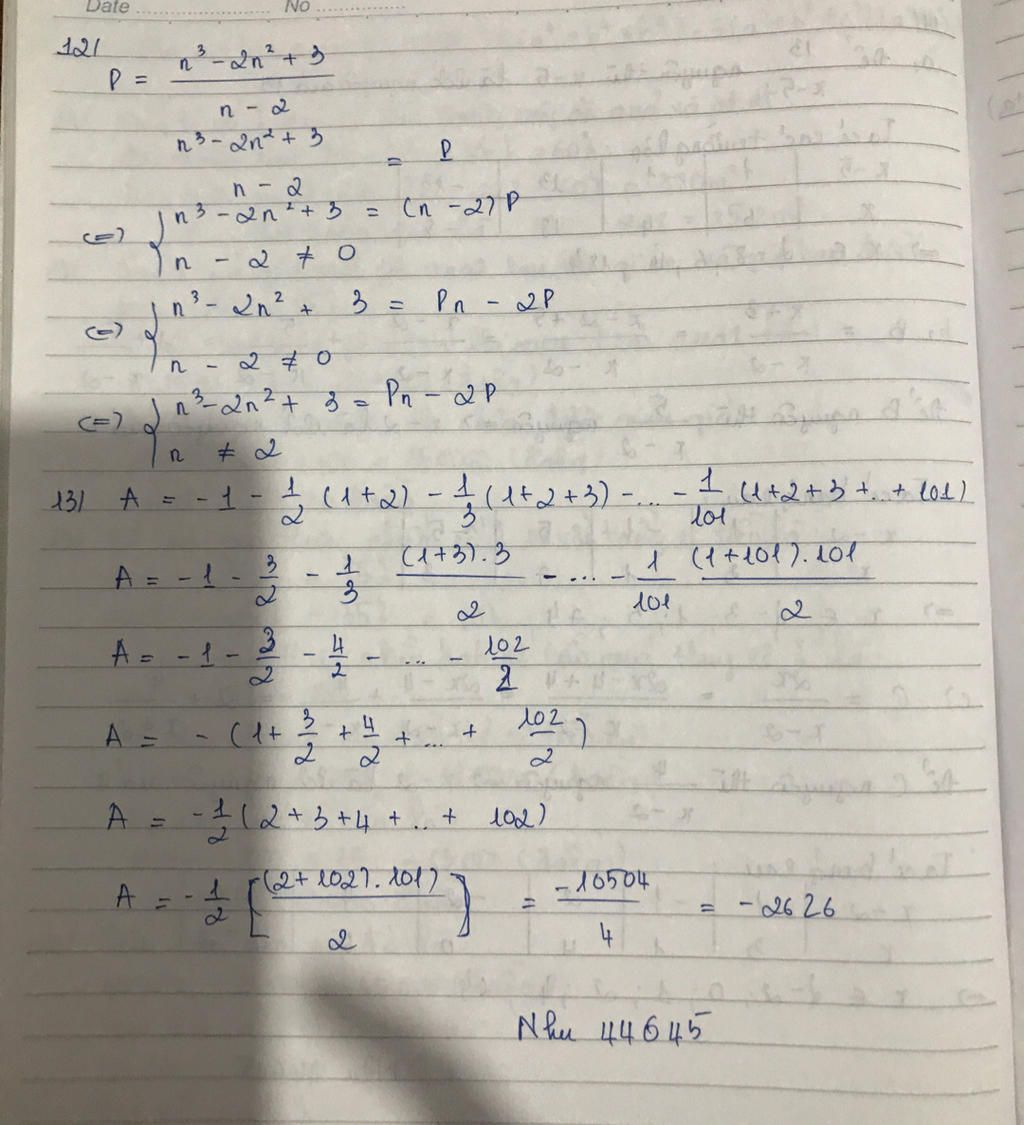 Date ............ No ............
12/
P = \frac{n³ - 2n² + 3}{n - 2}
\frac{n³ - 2n² + 3}{n - 2} = P
<=> { n³ - 2n² + 3 = (n - 2) P
n - 2 ≠ 0
<=> { n³ - 2n² + 3 = Pn - 2P
n - 2 ≠ 0
<=> { n³ - 2n² + 3 = Pn - 2P
n ≠ 2
13/ A = - 1 - \frac{1}{2} (1+2) - \frac{1}{3} (1+2+3) - ... - \frac{1}{101} (1+2+3+..+101)
A = - 1 - \frac{3}{2} - \frac{1}{3} \frac{(1+3).3}{2} - ... - \frac{1}{101} \frac{(1+101).101}{2}
A = - 1 - \frac{3}{2} - \frac{4}{2} - ... - \frac{102}{2}
A = - (1 + \frac{3}{2} + \frac{4}{2} + ... + \frac{102}{2})
A = - \frac{1}{2} (2+3+4+..+ 102)
A = - \frac{1}{2} [\frac{(2+102).101)}{2}] = \frac{-10504}{4} = -2626
Nhu 44645